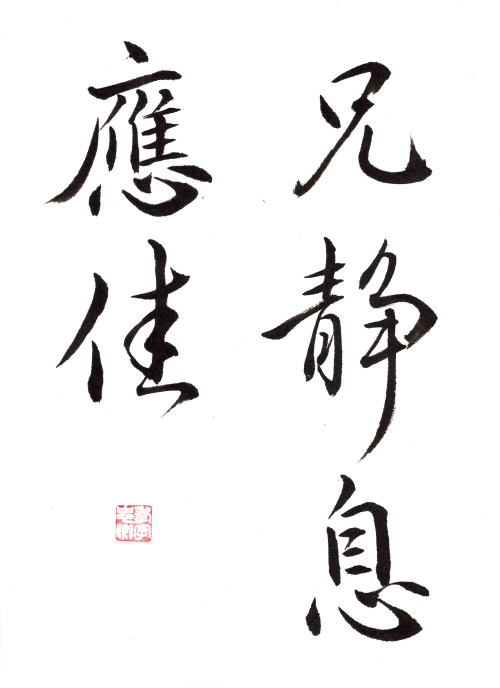 兄静息
應佳